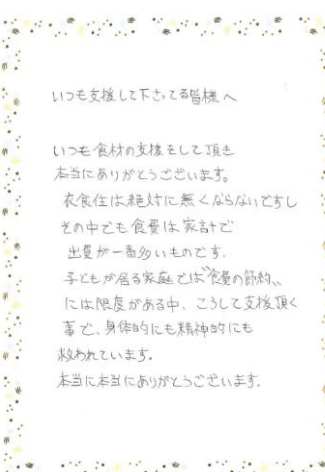 いつも支援して下さってる皆様へ
いつも食材の支援をして頂き
本当にありがとうございます。
衣食住は絶対に無くならないですし
その中でも食費は家計で
出費が一番多いものです。
子どもが居る家庭では〝食費の節約〟
には限度がある中、こうして支援頂く
事で、身体的にも精神的にも
救われています。
本当に本当にありがとうございます。